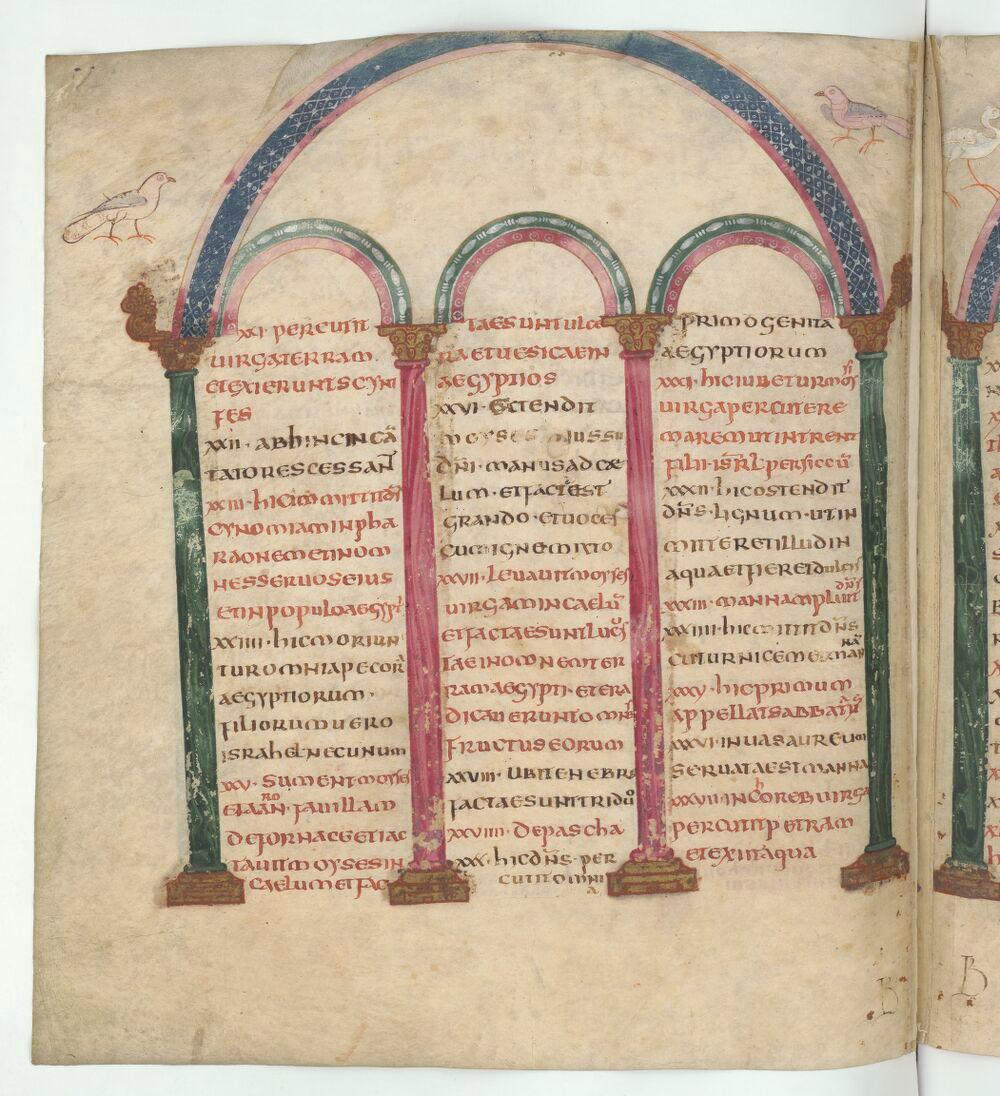 XXI· PERCUTIT
UIRGATERRAM
ETEXIERUNTSCYNI
FES
XXII· ABHINCINCĀ
TATORESCESSAÑ
XXIII·HIC MITTIT DÑS
CYNOMIAMINPHA
RAONEMETINOM
NESSERUOSEIUS
ETINPOPULOAEGYPTI
XXIIII·HICMORIUN
TUROMNIAPECORA
AEGYPTIORUM·
FILIORUMUERO
ISRAHELNECUNUM
XXV· SUMENTMOYSES
ETAARON·FAUILLAM
DEFORNACEETIAC
TAUITMOYSESIN
CAELUMETFAC
TAESUNTULCE
RAETUESICAEIN
AEGYPTIOS
XXVI·EXTENDIT
MOYSES IUSSU
DÑI·MANUSADCAE
LUM·ETFACTAEST
GRANDO·ETUOCES
CUMIGNEMIXTO
XXVII·LEUAUITMOYSES
UIRGAMINCAELŪ
ETFACTAESUNTLUCUS
TAEINOMNEMTER
RAMAEGYPTI·ETERA
DICAUERUNTOMNES
FRUCTUSEORUM
XXVIII·UBITENEBRE
FACTAESUNTTRIDUO
XXVIIII·DEPASCHA
XXX·HICDÑS·PER
CUTITOMNIA
PRIMOGENITA
AEGYPTIORUM
XXXI·HICIUBETURMOYSI
UIRGAPERCUTERE
MAREMUTINTRENT
FILII·ISRL·PERSICCŪ
XXXII·HICOSTENDIT
DÑS·LIGNUM·UTIN
MITTERETILLUDIN
AQUAETFIERETDULCIS
XXXIII·MANNAMPLUIT DÑS
XXXIIII·HICMITTITDÑS
COTURNICEMETMANNA
XXXV·HICPRIMUM
APPELLATSABBATŪ
XXXVI·INUASAUREUM
SERUATAESTMANNA
XXXVII·INCHOREBUIRGA
PERCUTITPETRAM
ETEXIITAQUA
B
B